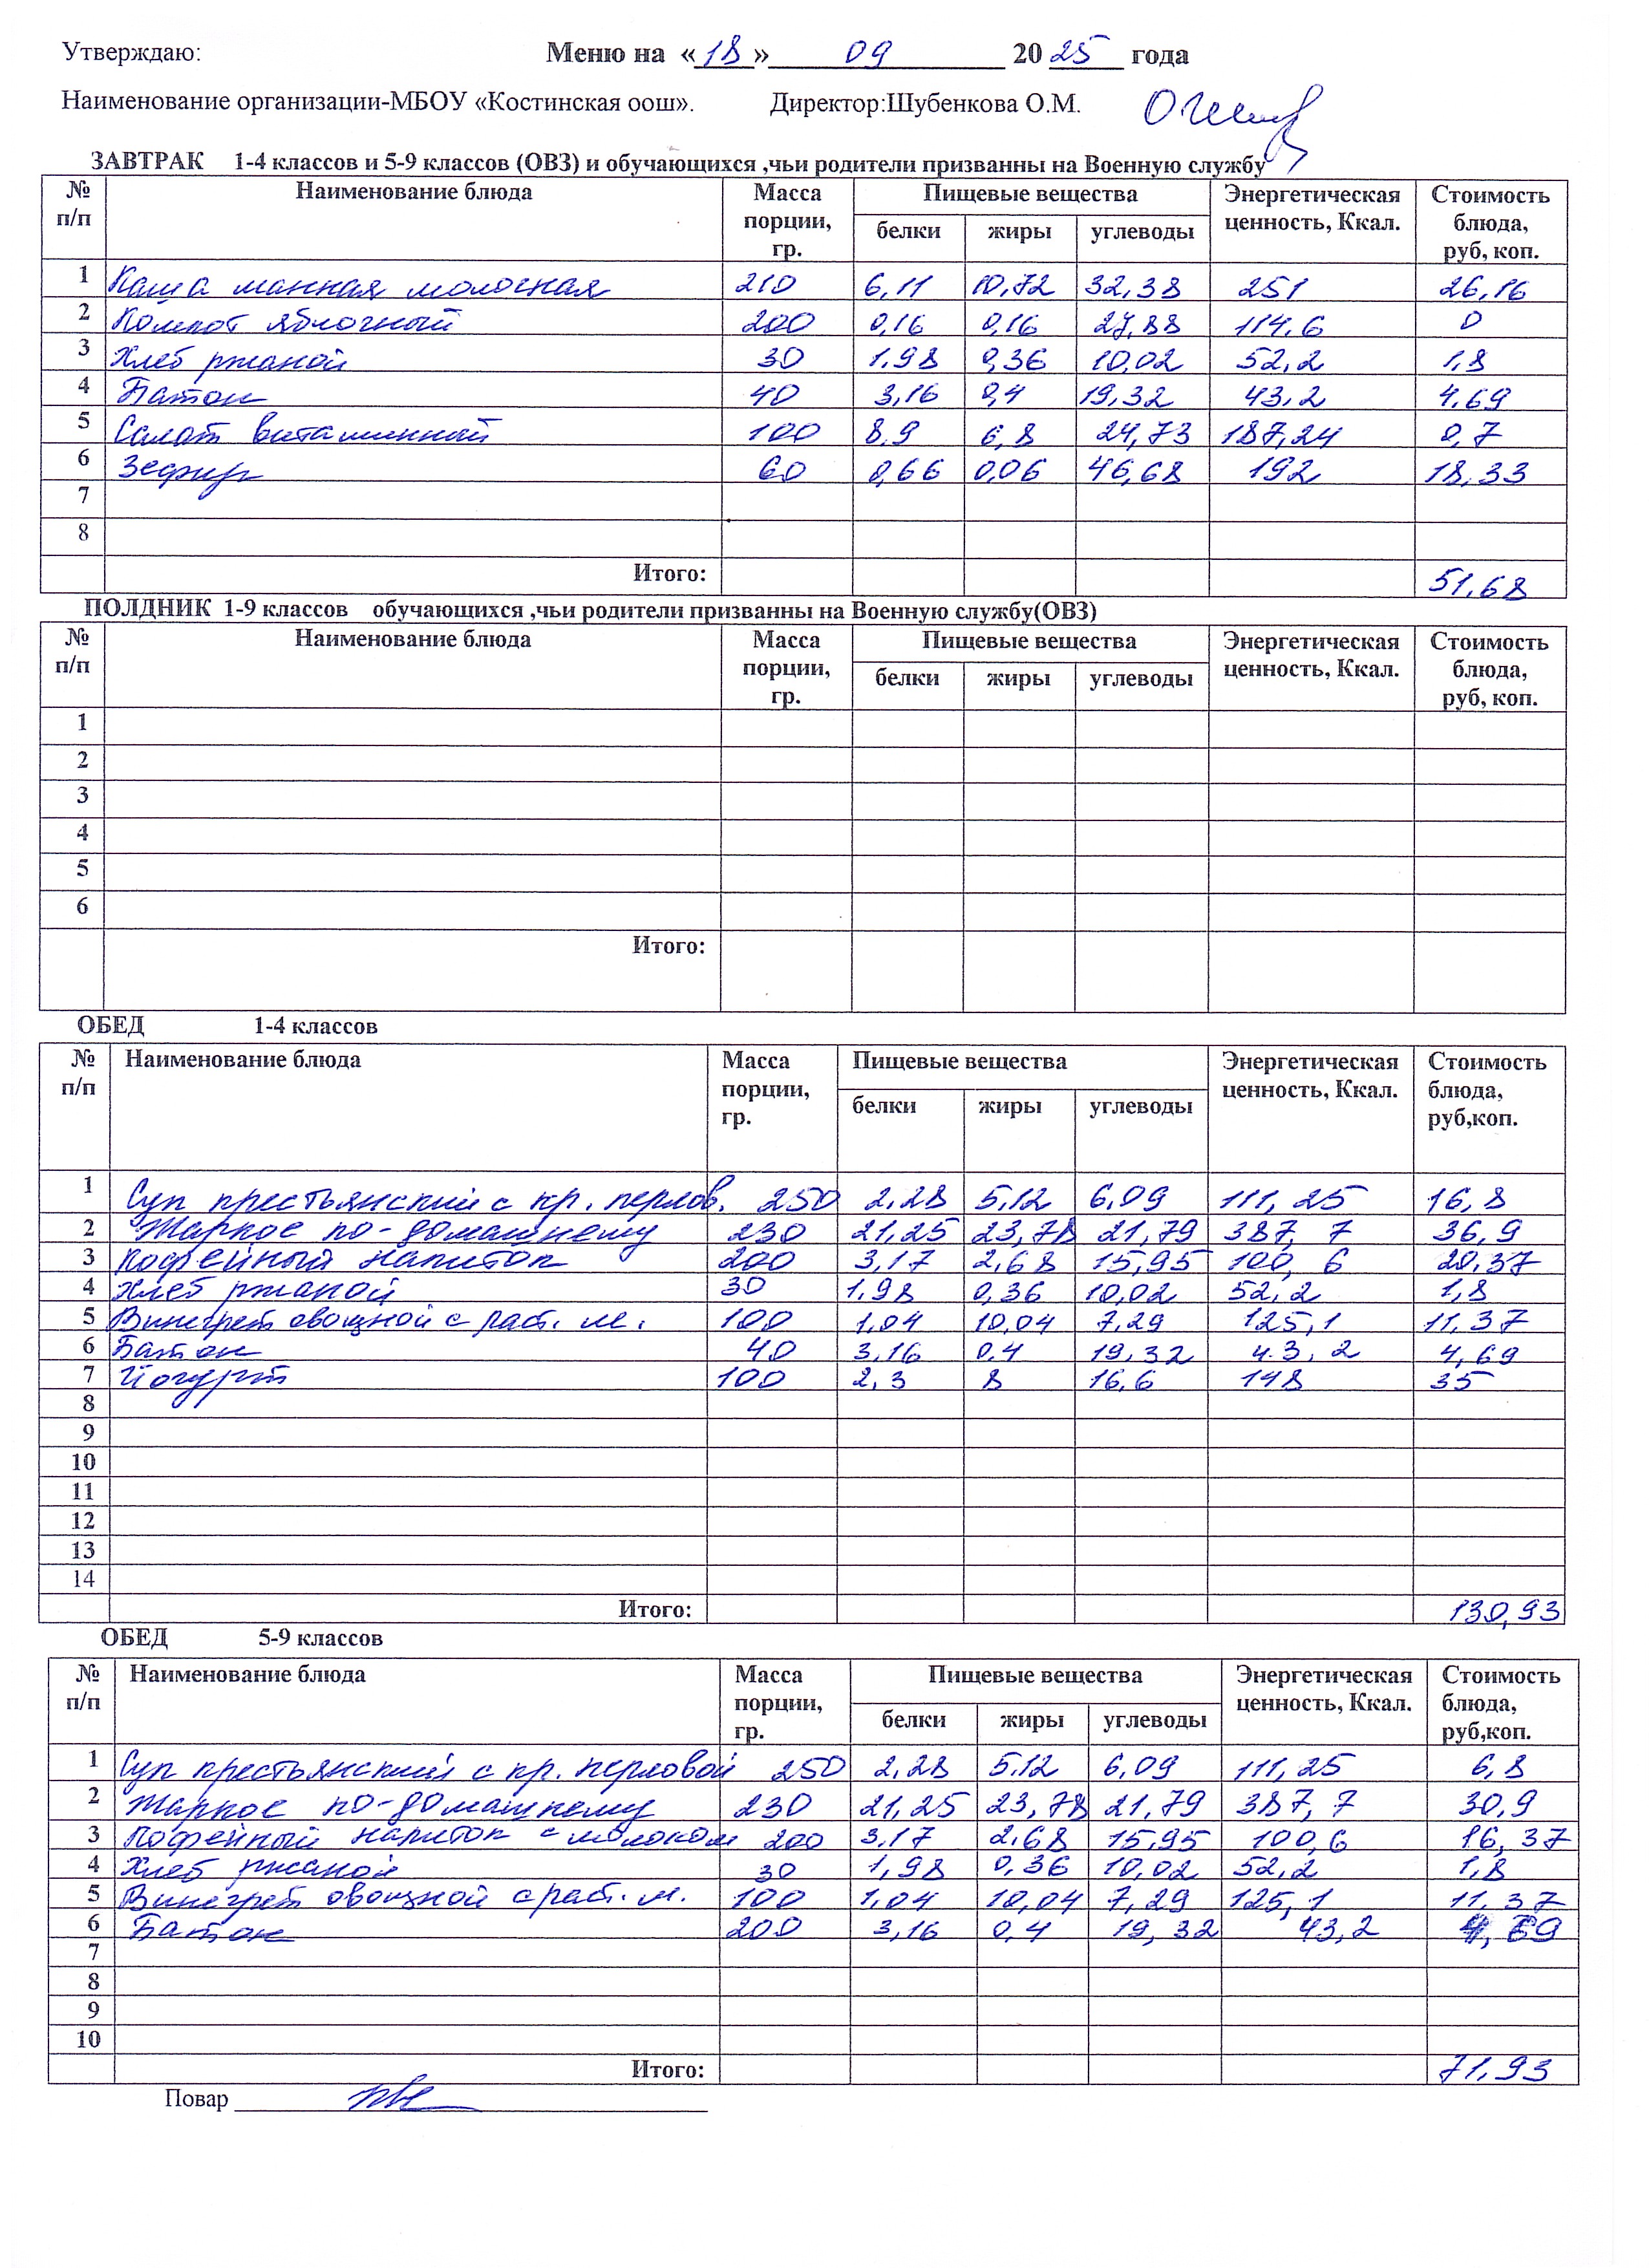 Утверждаю: Меню на «18» 09 2025 года
Наименование организации-МБОУ «Костинская оош». Директор:Шубенкова О.М.
ЗАВТРАК 1-4 классов и 5-9 классов (ОВЗ) и обучающихся ,чьи родители призванны на Военную службу
№ п/п Наименование блюда Масса порции, гр. Пищевые вещества Энергетическая ценность, Ккал. Стоимость блюда, руб, коп.
белки жиры углеводы
1 Каша манная молочная 210 6,11 10,72 32,38 251 26,16
2 Компот яблочный 200 0,16 0,16 27,88 114,6 0
3 Хлеб ржаной 30 1,98 0,36 10,02 52,2 1,8
4 Батон 40 3,16 0,4 19,32 43,2 4,69
5 Салат витаминный 100 8,9 6,8 24,73 187,24 0,7
6 Зефир 60 0,66 0,06 46,68 192 18,33
7
8
Итого: 51,68
ПОЛДНИК 1-9 классов обучающихся ,чьи родители призванны на Военную службу(ОВЗ)
№ п/п Наименование блюда Масса порции, гр. Пищевые вещества Энергетическая ценность, Ккал. Стоимость блюда, руб, коп.
белки жиры углеводы
1
2
3
4
5
6
Итого:
ОБЕД 1-4 классов
№ п/п Наименование блюда Масса порции, гр. Пищевые вещества Энергетическая ценность, Ккал. Стоимость блюда, руб,коп.
белки жиры углеводы
1 Суп крестьянский с кр. перлов. 250 2,28 5,12 6,09 111,25 16,8
2 Жаркое по-домашнему 230 21,25 23,78 21,79 387,7 36,9
3 Кофейный напиток 200 3,17 2,68 15,95 100,6 20,37
4 Хлеб ржаной 30 1,98 0,36 10,02 52,2 1,8
5 Винегрет овощной с раст. м. 100 1,04 10,04 7,29 125,1 11,37
6 Батон 40 3,16 0,4 19,32 43,2 4,69
7 Йогурт 100 2,3 8 16,6 148 35
8
9
10
11
12
13
14
Итого: 130,93
ОБЕД 5-9 классов
№ п/п Наименование блюда Масса порции, гр. Пищевые вещества Энергетическая ценность, Ккал. Стоимость блюда, руб,коп.
белки жиры углеводы
1 Суп крестьянский с кр. перловой 250 2,28 5,12 6,09 111,25 6,8
2 Жаркое по-домашнему 230 21,25 23,78 21,79 387,7 30,9
3 Кофейный напиток с молоком 200 3,17 2,68 15,95 100,6 16,37
4 Хлеб ржаной 30 1,98 0,36 10,02 52,2 1,8
5 Винегрет овощной с раст. м. 100 1,04 10,04 7,29 125,1 11,37
6 Батон 200 3,16 0,4 19,32 43,2 4,69
7
8
9
10
Итого: 71,93
Повар